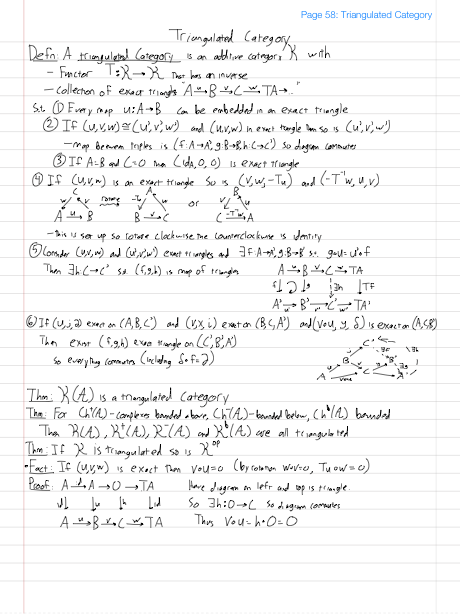 Page 58: Triangulated Category
Triangulated Category
Defn: A triangulated category is an additive category K with
- Functor T: K → K that has an inverse
- collection of exact triangles "A →u B →v C →w TA → .. "
s.t. ① Every map u: A → B can be embedded in an exact triangle
② If (u,v,w) ≅ (u',v',w') and (u,v,w) is exact triangle then so is (u',v',w')
- map between triples is (f: A→A', g: B→B', h: C→C') so diagram commutes
③ If A=B and C=0 then (id_A, 0, 0) is exact triangle
④ If (u,v,w) is an exact triangle so is (v,w,-Tu) and (-T⁻¹w, u, v)
C A B
w v rotate -Tu w or v u
A →u B B →v C C -T⁻¹w A
- this is set up so rotate clockwise then counterclockwise is identity
⑤ Consider (u,v,w) and (u',v',w') exact triangles and ∃ f: A→A', g: B→B' s.t. g∘u = u'∘f
Then ∃ h: C→C' s.t. (f,g,h) is map of triangles
A →u B →v C →w TA
f↓ ↓g ∃h ↓Tf
A' →u' B' →v' C' →w' TA'
⑥ If (u, j, ∂) exact on (A, B, C') and (v, x, i) exact on (B, C, A') and (v∘u, y, δ) is exact on (A, C, B')
Then exist (f, g, h) exact triangle on (C', B', A')
so everything commutes (including δ∘f = ∂)
Thm: K(A) is a triangulated category
Thm: For Ch⁻(A) - complexes bounded above, Ch⁺(A) - bounded below, Chᵇ(A) bounded
Then K(A), K⁺(A), K⁻(A) and Kᵇ(A) are all triangulated
Thm: If K is triangulated so is K^op
• Fact: If (u,v,w) is exact then v∘u = 0 (by rotation w∘v=0, Tu∘w=0)
Proof: A →id A → 0 → TA Have diagram on left and top is triangle.
id↓ ↓u ↓h ↓id So ∃ h: 0 → C so diagram commutes
A →u B →v C →w TA Thus v∘u = h∘0 = 0